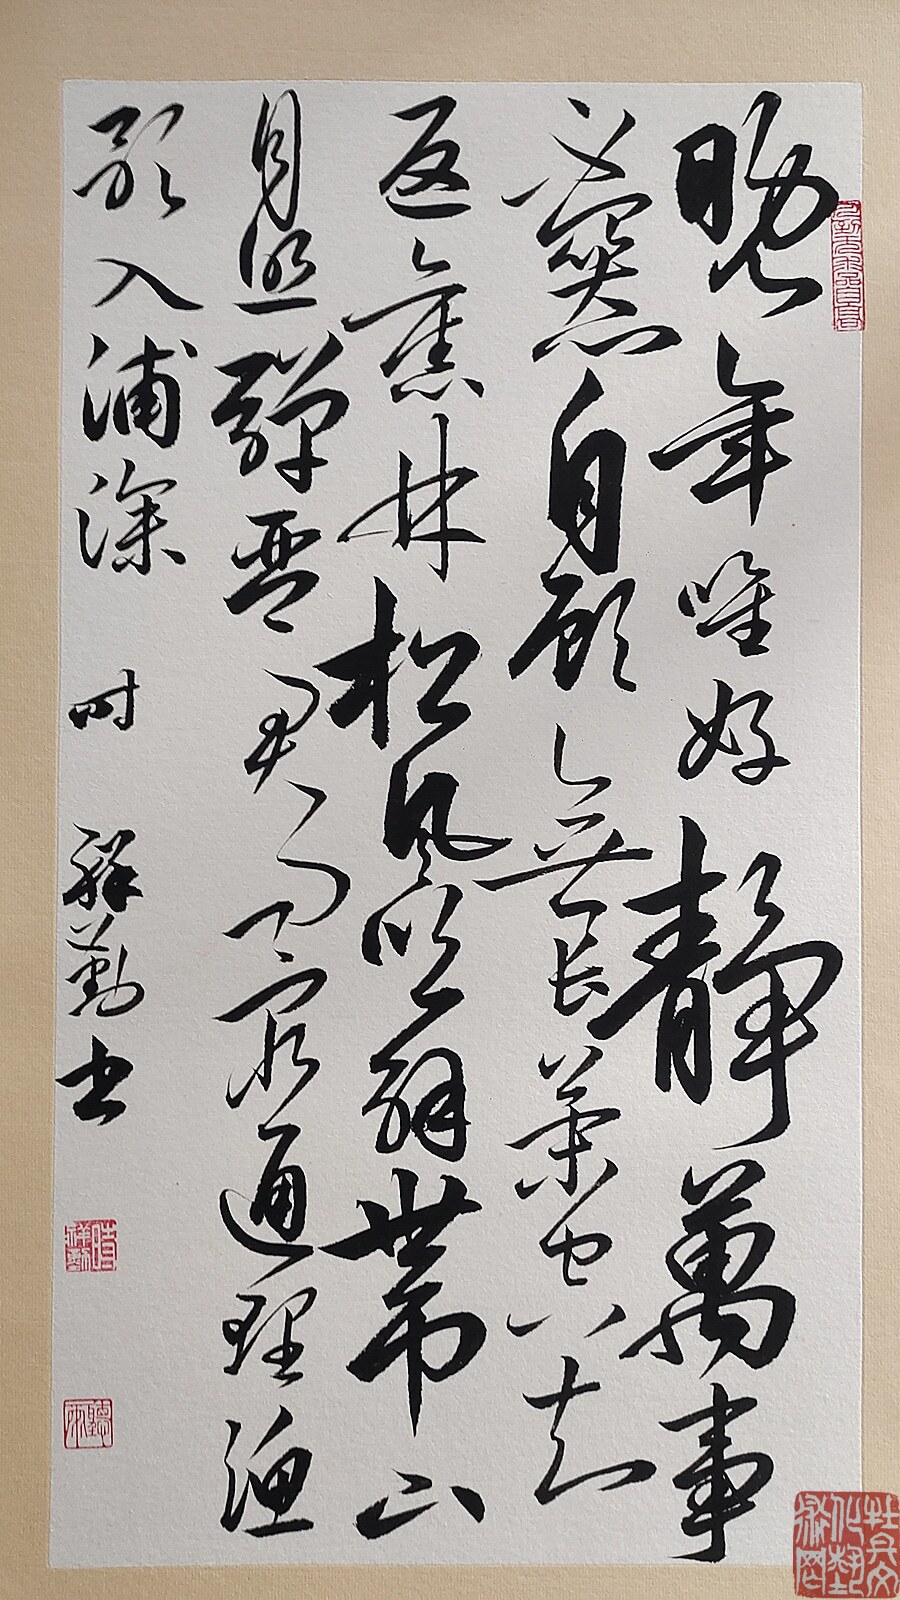 晚年唯好靜萬事
不關心自顧無長策空知
返舊林松風吹解帶山
月照彈琴君問窮通理漁
歌入浦深 时 祥勤书
時祥勤